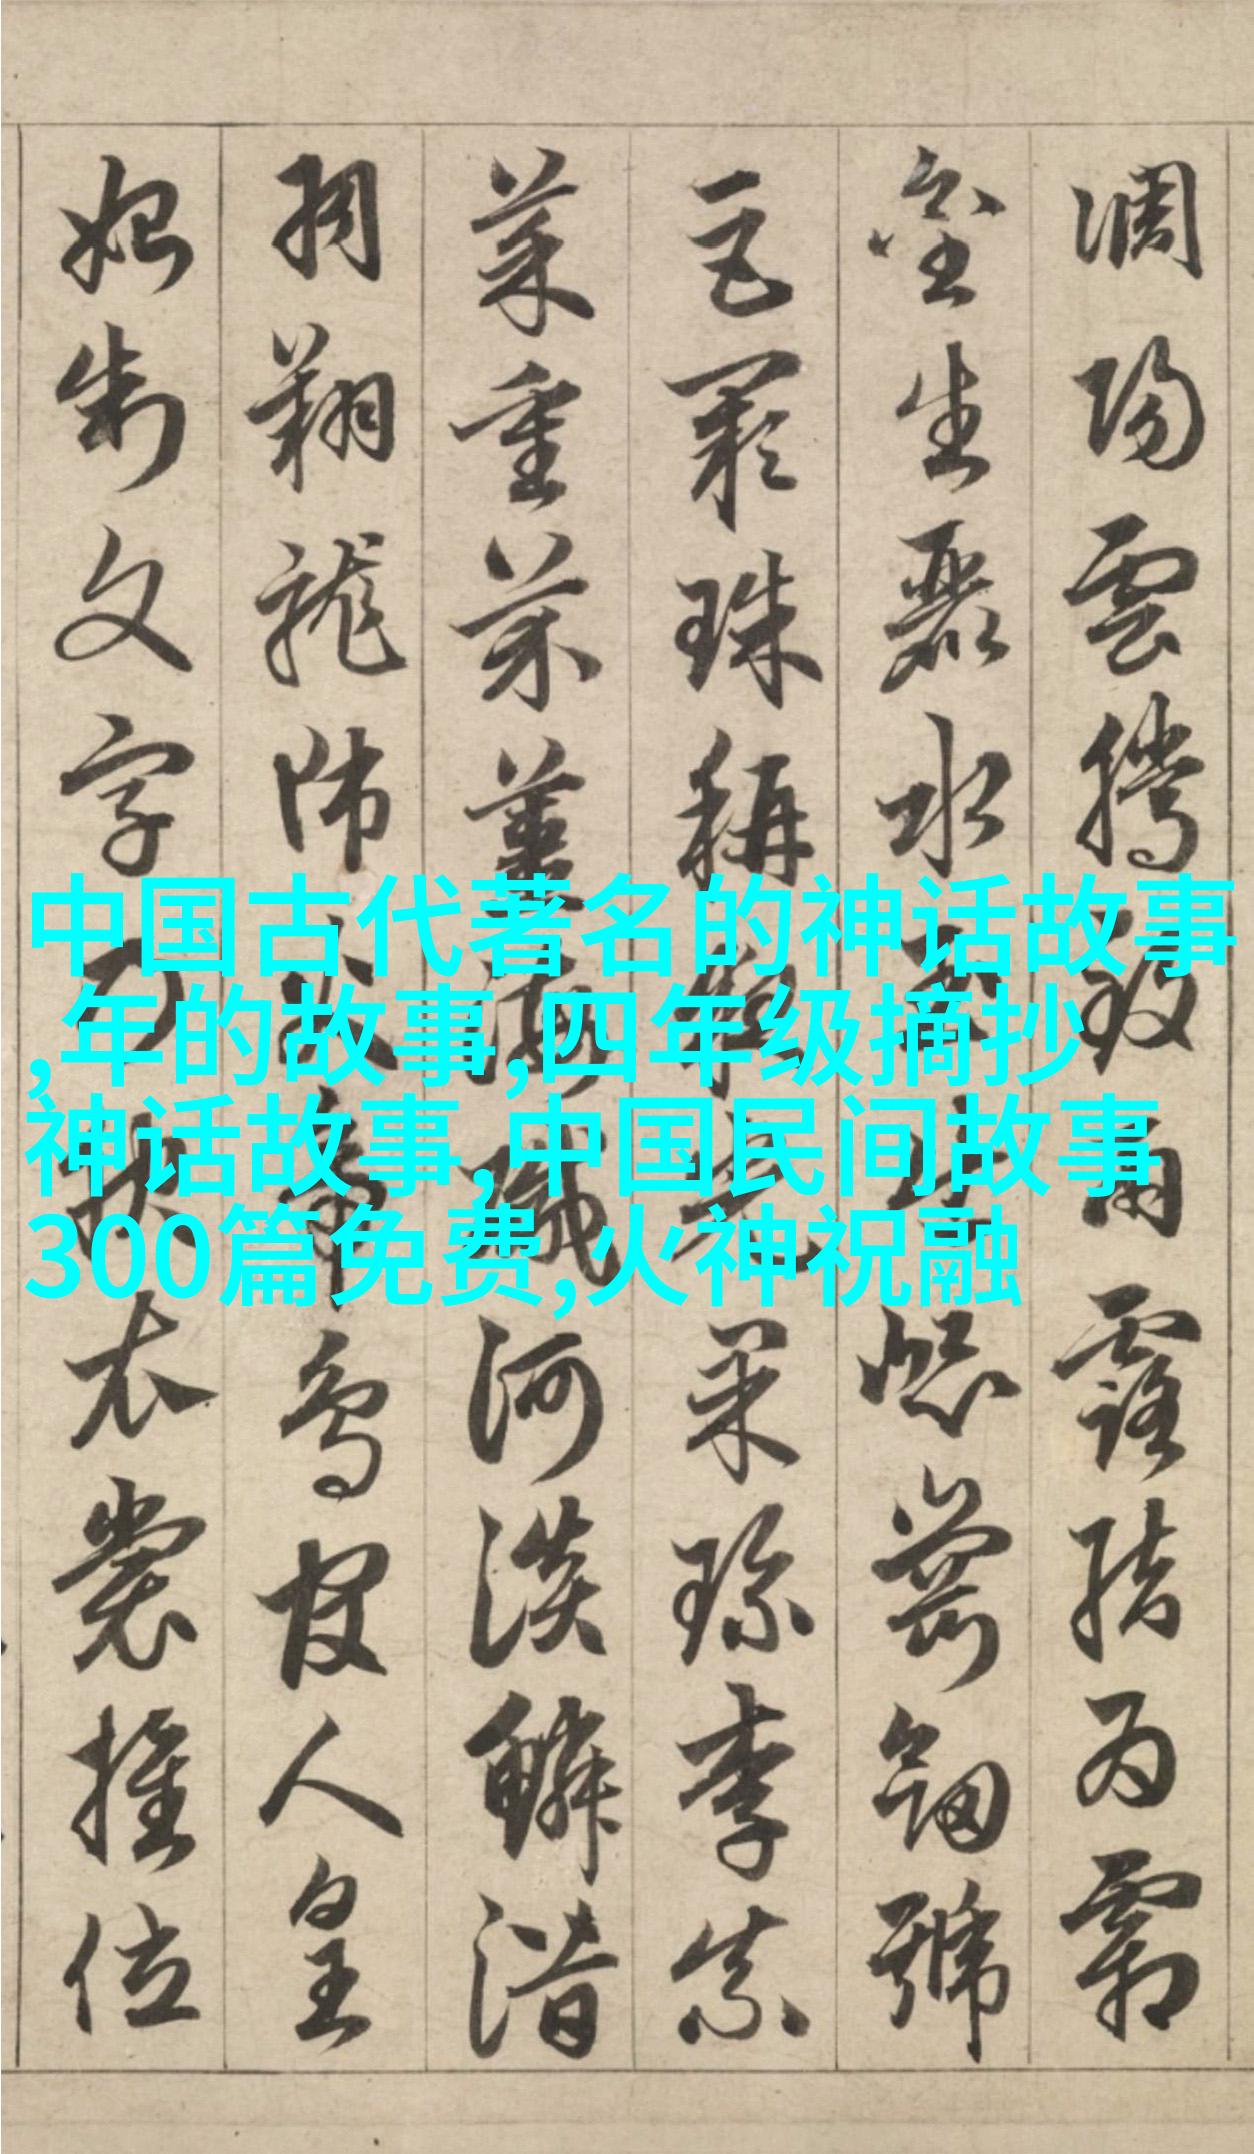 調陽雲騰致雨露結為霜
金生麗水玉出崑崗劍號
巨闕珠稱夜光果珍李柰
菜重芥薑海鹹河淡鱗潛
羽翔龍師火帝鳥官人皇
始制文字乃服衣裳推位
中国古代著名的神话故事
,年的故事,四年级摘抄
神话故事,中国民间故事
300篇免费,火神祝融